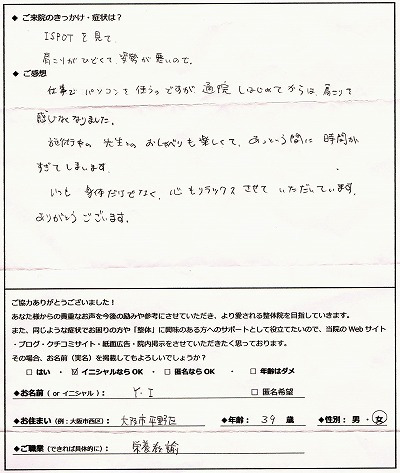 ◆ ご来院のきっかけ・症状は？
ISPOTを見て
肩こりがひどくて、姿勢が悪いので。
◆ ご感想
仕事でパソコンを使うのですが、通院しはじめてからは、肩こりを
感じなくなりました。
施術中の先生とのおしゃべりも楽しくて、あっという間に時間が
すぎてしまいます。
いつも身体だけでなく、心もリラックスさせていただいています。
ありがとうございます。
ご協力ありがとうございました！
あなた様からの貴重なお声を今後の励みや参考にさせていただき、より愛される整体院を目指していきます。
また、同じような症状でお困りの方や「整体」に興味のある方へのサポートとして役立てたいので、当院のWebサイト
・ブログ・クチコミサイト・紙面広告・院内掲示をさせていただきたく思っております。
その場合、お名前（実名）を掲載してもよろしいでしょうか？
□ はい ・ ☑ イニシャルなら OK ・ □ 匿名なら OK ・ □ 年齢はダメ
◆お名前（ or イニシャル）： Y・I □ 匿名希望
◆お住まい（例：大阪市西区）： 大阪市平野区 ◆年齢： 39 歳 ◆性別： 男 ・ 女
◆ご職業（できれば具体的に）： 栄養教諭